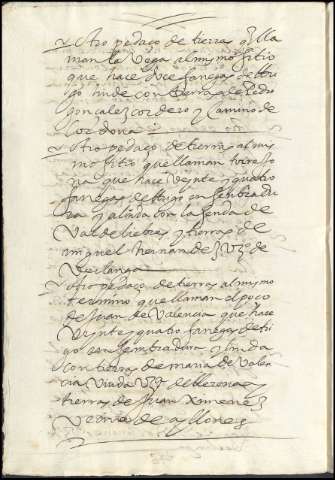 Otro pedaço de tierras q̃ lla
man la Vega al mismo sitio
que hace doce fanegas de tri
go linde con tierras de Pedro
gonçalez cordero y Camino de
Cordoua
Otro pedaço de tierras al mis
mo sitio que llaman
na que hace Veynte y quatro
fanegas de trigo en senbradu
ra y alinda con la senda de
Valdeliebres y tierras de
miguel hernandez Vº de
Verlanga
Otro pedaço de tierras al mismo
termino que llaman el poço
de Juan de Valencia que hace
Veynte y quatro fanegas de tri
go en sembradura y linda
con tierras de maria de Valen
cia Viuda de llerena y
tierras de Juan Ximenez
Vezino de ayllones